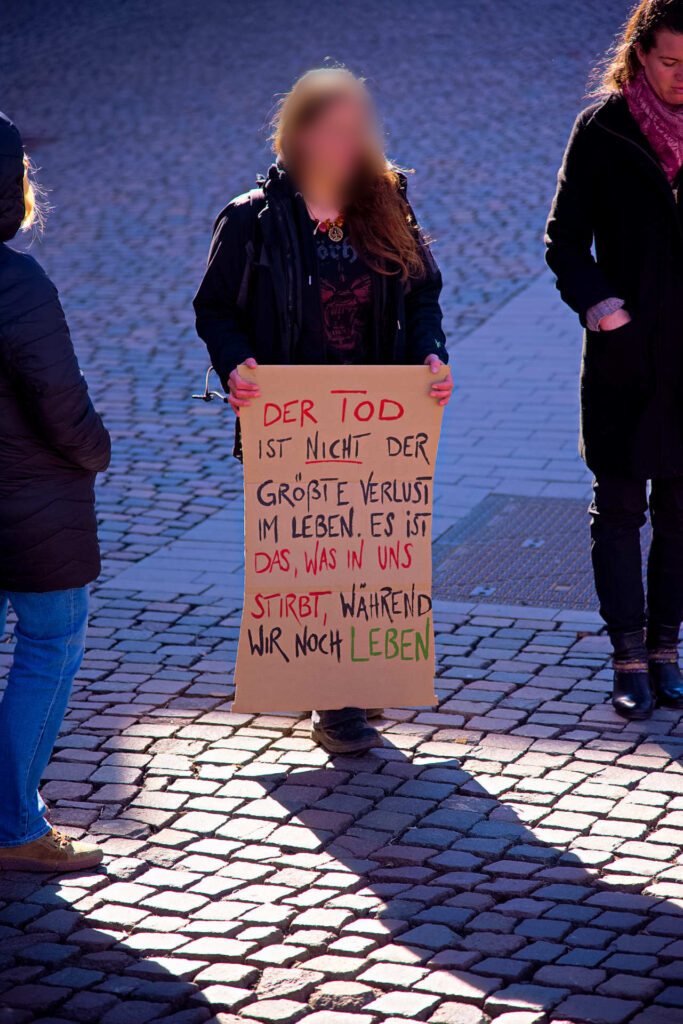 DER TOD
IST NICHT DER
GRÖßTE VERLUST
IM LEBEN. ES IST
DAS, WAS IN UNS
STIRBT, WÄHREND
WIR NOCH LEBEN